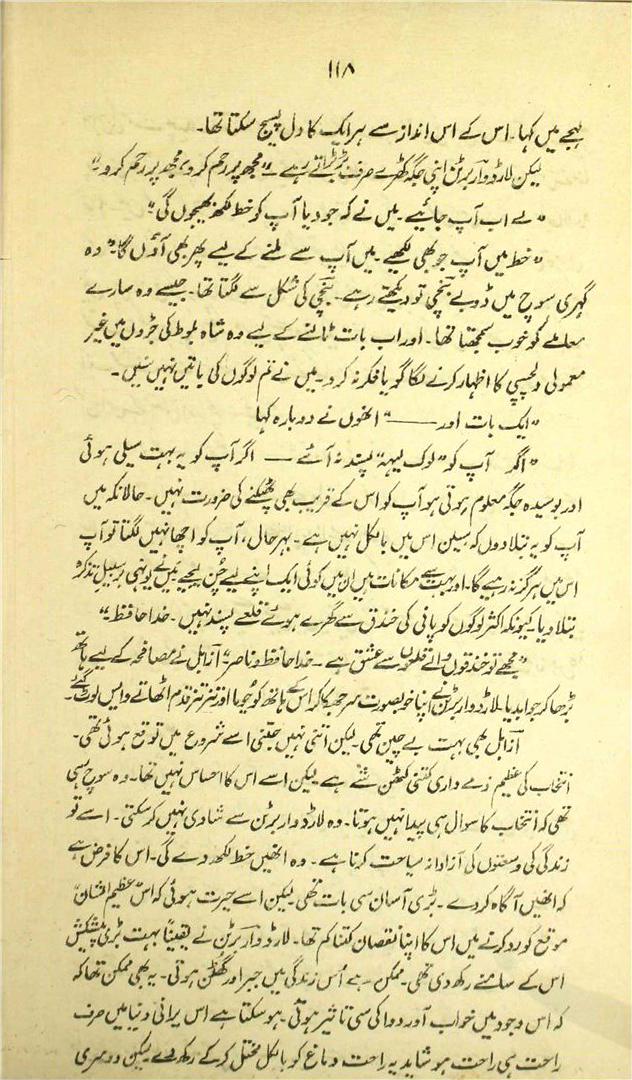 ۱۱۸
لہجے میں کہا۔ اس کے اس انداز سے ہر ایک کا دل پسیج سکتا تھا۔
لیکن لارڈ واربرٹن اپنی جگہ کھڑے صرف بڑبڑاتے رہے۔ "مجھ پر رحم کرو، مجھ پر رحم کرو۔"
"لے اب آپ جائیے۔ میں نے کہہ جو دیا آپ کو خط لکھ بھیجوں گی"
"خط میں آپ جو بھی لکھیے۔ میں آپ سے ملنے کے لیے پھر بھی آؤں گا۔" وہ
گہری سوچ میں ڈوبے بنچی تو دیکھتے رہے۔ بنچی کی شکل سے لگتا تھا۔ جیسے وہ سارے
معاملے کو خوب سمجھتا تھا۔ اور اب بات ٹالنے کے لیے وہ شاہ بلوط کی جڑوں میں غیر
معمولی دلچسپی کا اظہار کرنے لگا گویا فکر نہ کرو۔ میں نے تم لوگوں کی باتیں نہیں سنیں۔
"ایک بات اور ——" انھوں نے دوبارہ کہا
"اگر آپ کو "لوک لیہہ" پسند نہ آئے — اگر آپ کو یہ بہت سیلی ہوئی
اور بوسیدہ جگہ معلوم ہوتی ہو آپ کو اس کے قریب بھی پھٹکنے کی ضرورت نہیں۔ حالانکہ میں
آپ کو یہ بتلا دوں کہ سیلن اس میں بالکل نہیں ہے۔ بہرحال، آپ کو اچھا نہیں لگتا تو آپ
اس میں ہرگز نہ رہیے گا۔ اور بہت سے مکانات ہیں ان میں کوئی ایک اپنے لیے چُن لیجیے میں نے یونہی برسبیل تذکرہ
بتلا دیا۔ کیونکہ اکثر لوگوں کو پانی کی خندق سے گھرے ہوئے قلعے پسند نہیں۔ خدا حافظ۔"
"مجھے تو خندقوں والے قلعوں سے عشق ہے۔ خدا حافظ و ناصر" آزابل نے مصافحہ کے لیے ہاتھ
بڑھا کر جواب دیا۔ لارڈ واربرٹن نے اپنا خوبصورت سر جھکا کر اس کے ہاتھ کو چوما اور تیز تیز قدم اٹھاتے واپس لوٹ گئے۔
آزابل بھی بہت بے چین تھی۔ لیکن اتنی نہیں جتنی اسے شروع میں توقع ہوئی تھی۔
انتخاب کی عظیم ذمے داری کتنی کٹھن شے ہے لیکن اسے اس کا احساس نہیں تھا۔ وہ سوچ رہی
تھی کہ انتخاب کا سوال ہی پیدا نہیں ہوتا۔ وہ لارڈ واربرٹن سے شادی نہیں کر سکتی۔ اسے تو
زندگی کی وسعتوں کی آزادانہ سیاحت کرنا ہے۔ وہ انھیں خط لکھ دے گی۔ اس کا فرض ہے
کہ انھیں آگاہ کر دے۔ بڑی آسان سی بات تھی لیکن اسے حیرت ہوئی کہ اس "عظیم الشان"
موقع کو رد کرنے میں اس کا اپنا نقصان کتنا کم تھا۔ لارڈ واربرٹن نے یقیناً بہت بڑی پیشکش
اس کے سامنے رکھ دی تھی۔ ممکن ہے اُس زندگی میں جبر اور گھٹن ہوتی۔ یہ بھی ممکن تھا کہ
کہ اس وجود میں خواب آور دوا کی سی تاثیر ہوتی۔ ہو سکتا ہے اس پرانی دنیا میں صرف
راحت ہی راحت ہو شاید یہ راحت دماغ کو بالکل مختل کر کے رکھ دے لیکن دوسری